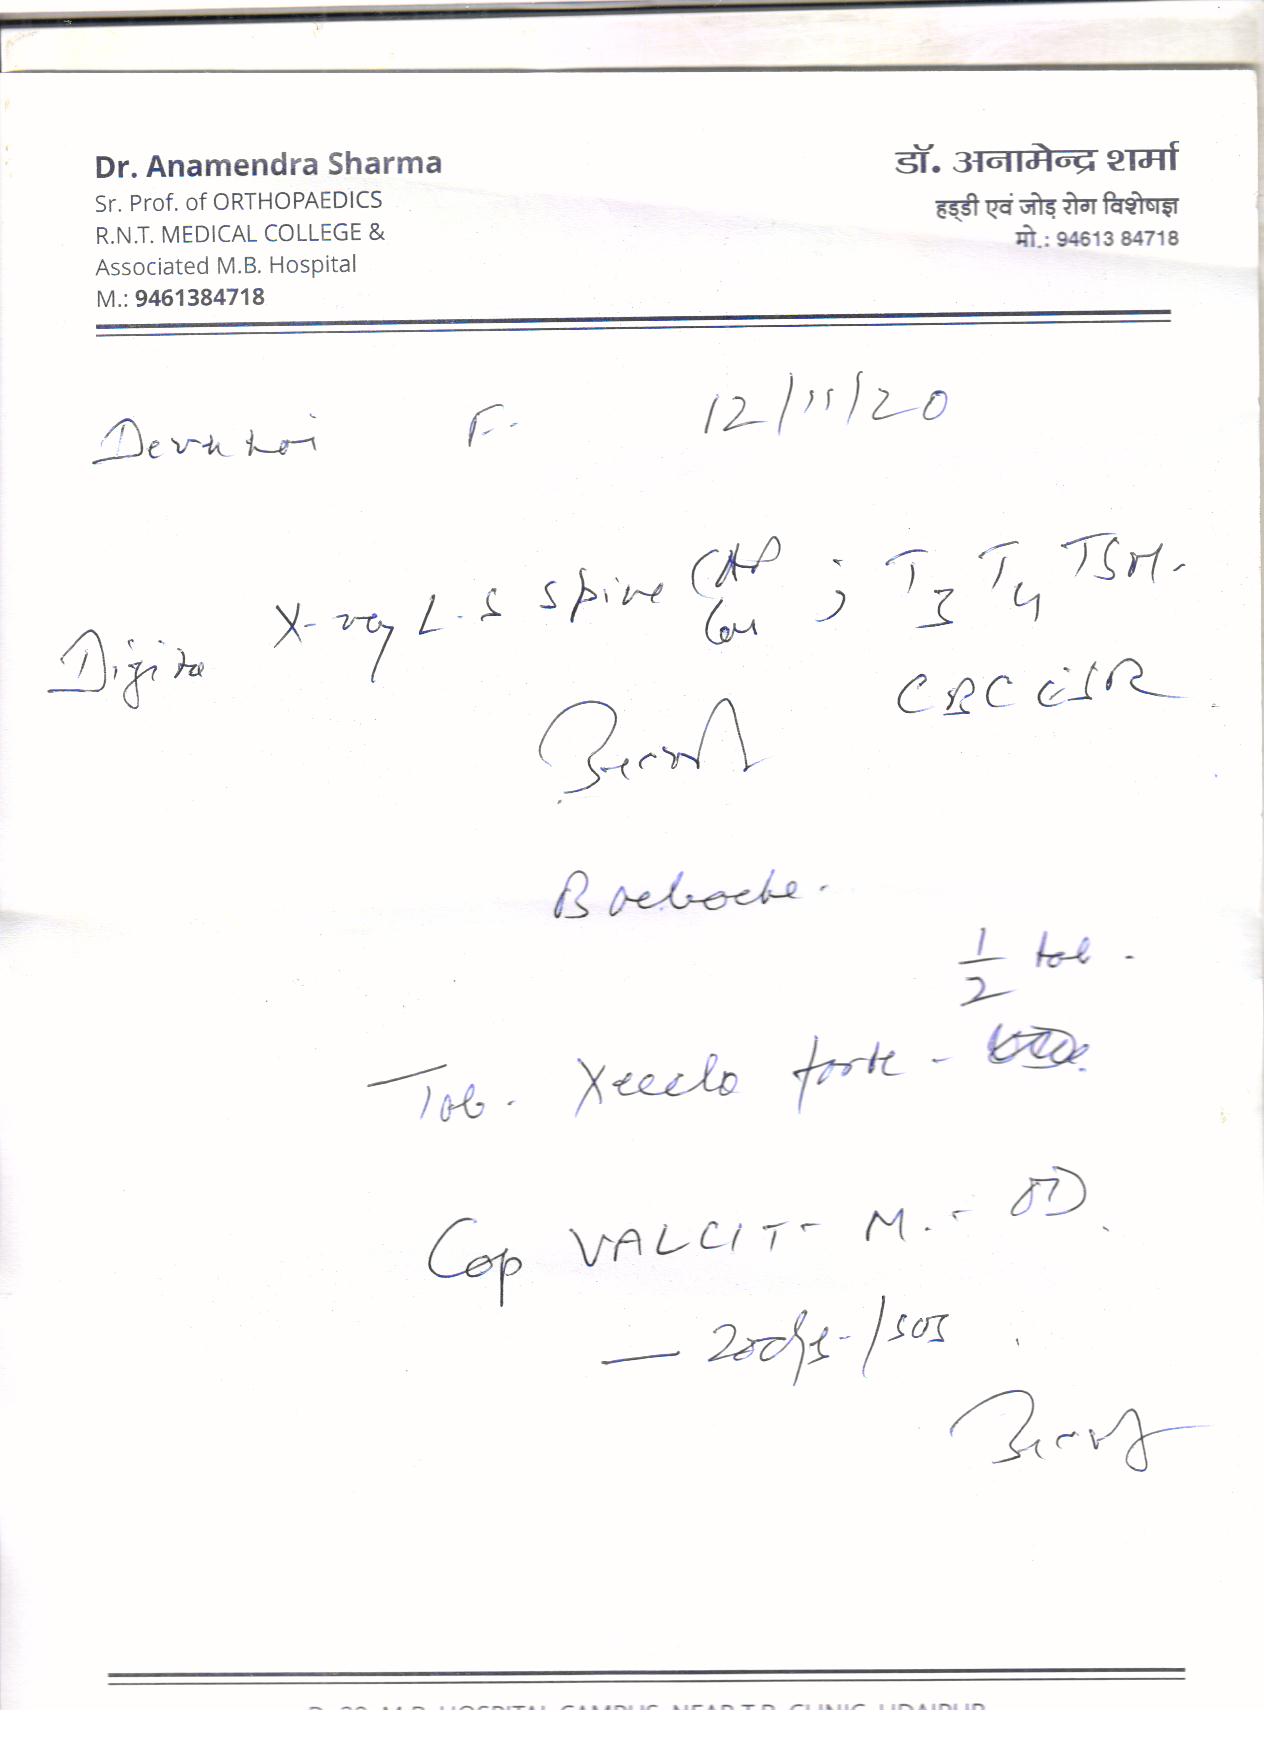 Dr. Anamendra Sharma
Sr. Prof. of ORTHOPAEDICS
R.N.T. MEDICAL COLLEGE &
Associated M.B. Hospital
M.: 9461384718
डॉ. अनामेन्द्र शर्मा
हड्डी एवं जोड़ रोग विशेषज्ञ
मो.: 94613 84718
F. 12/11/20
X-ray L-S Spine AP ; T3 T4 TSH.
Digital
CBC ESR
Backache.
1/2 tab.
Tab. forte -
Cap VALCIT - M. - OD
— 20 dys - / SOS